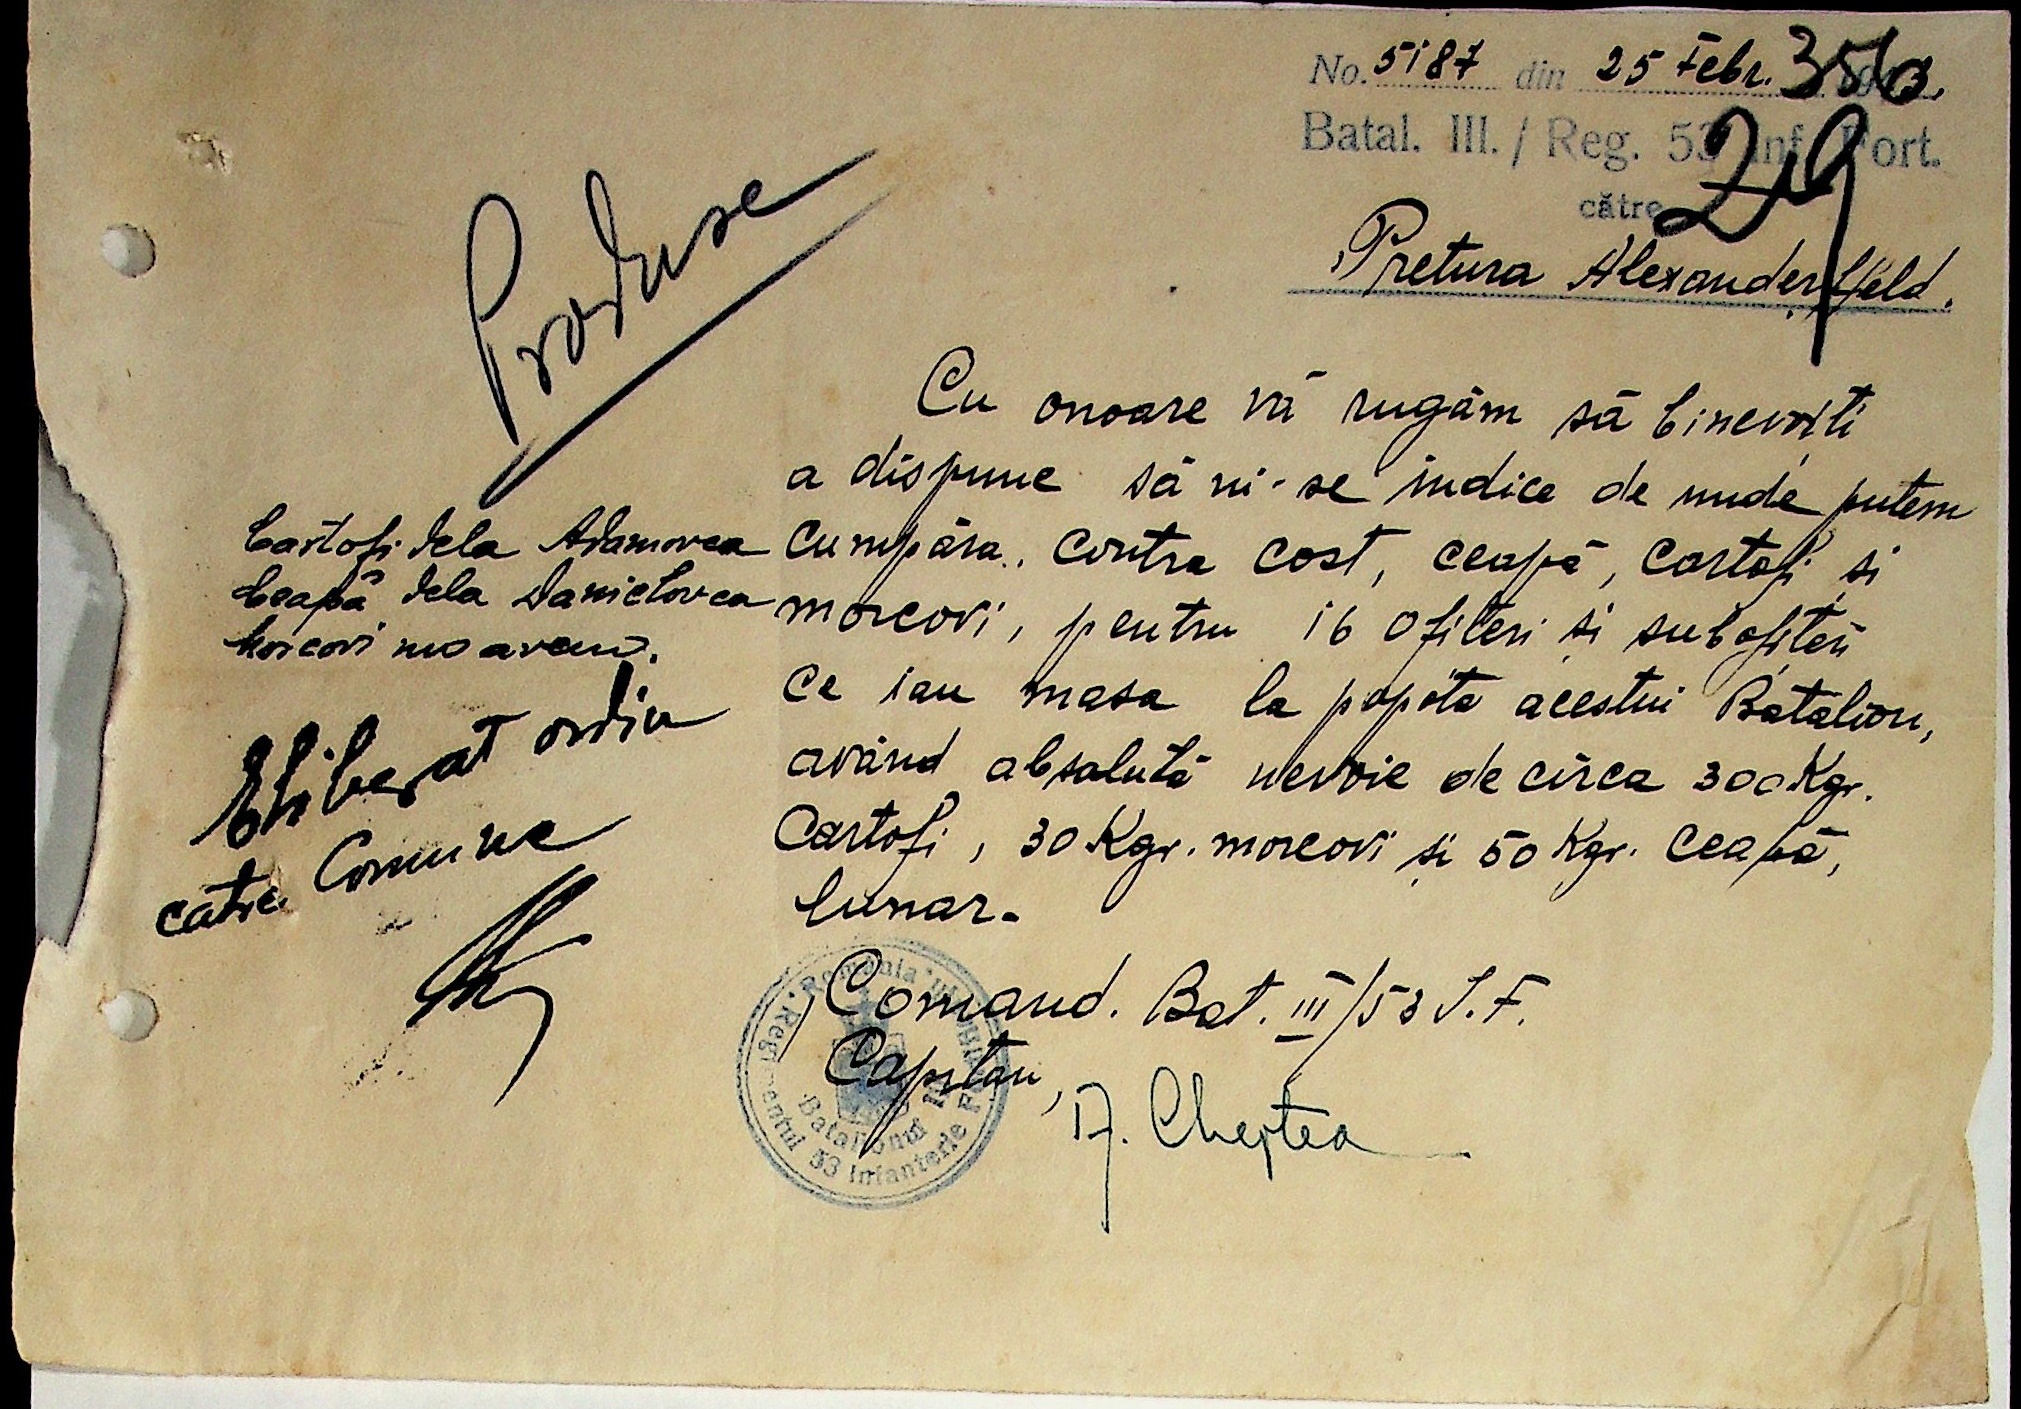 No. 5187 din 25 Febr. 1943.
356
Batal. III. / Reg. 53 Inf. Fort.
29
către
Pretura Alexanderfeld.
Produse
Cu onoare vă rugăm să binevoiți
a dispune să ni-se indice de unde putem
cumpăra, contra cost, ceapă, cartofi și
morcovi, pentru 16 ofițeri și subofițeri
ce iau masa la popota acestui Batalion,
având absolută nevoie de circa 300 Kgr.
Cartofi, 30 Kgr. morcovi și 50 Kgr. ceapă,
lunar.
Cartofi dela Adamovca
Ceapă dela Danielovca
Morcovi nu avem.
Eliberat ordin
catre Comune
Comand. Bat. III/53 I.F.
Capitan,
A. Cheptea
România
Regimentul 53 Infanterie
Batalionul III